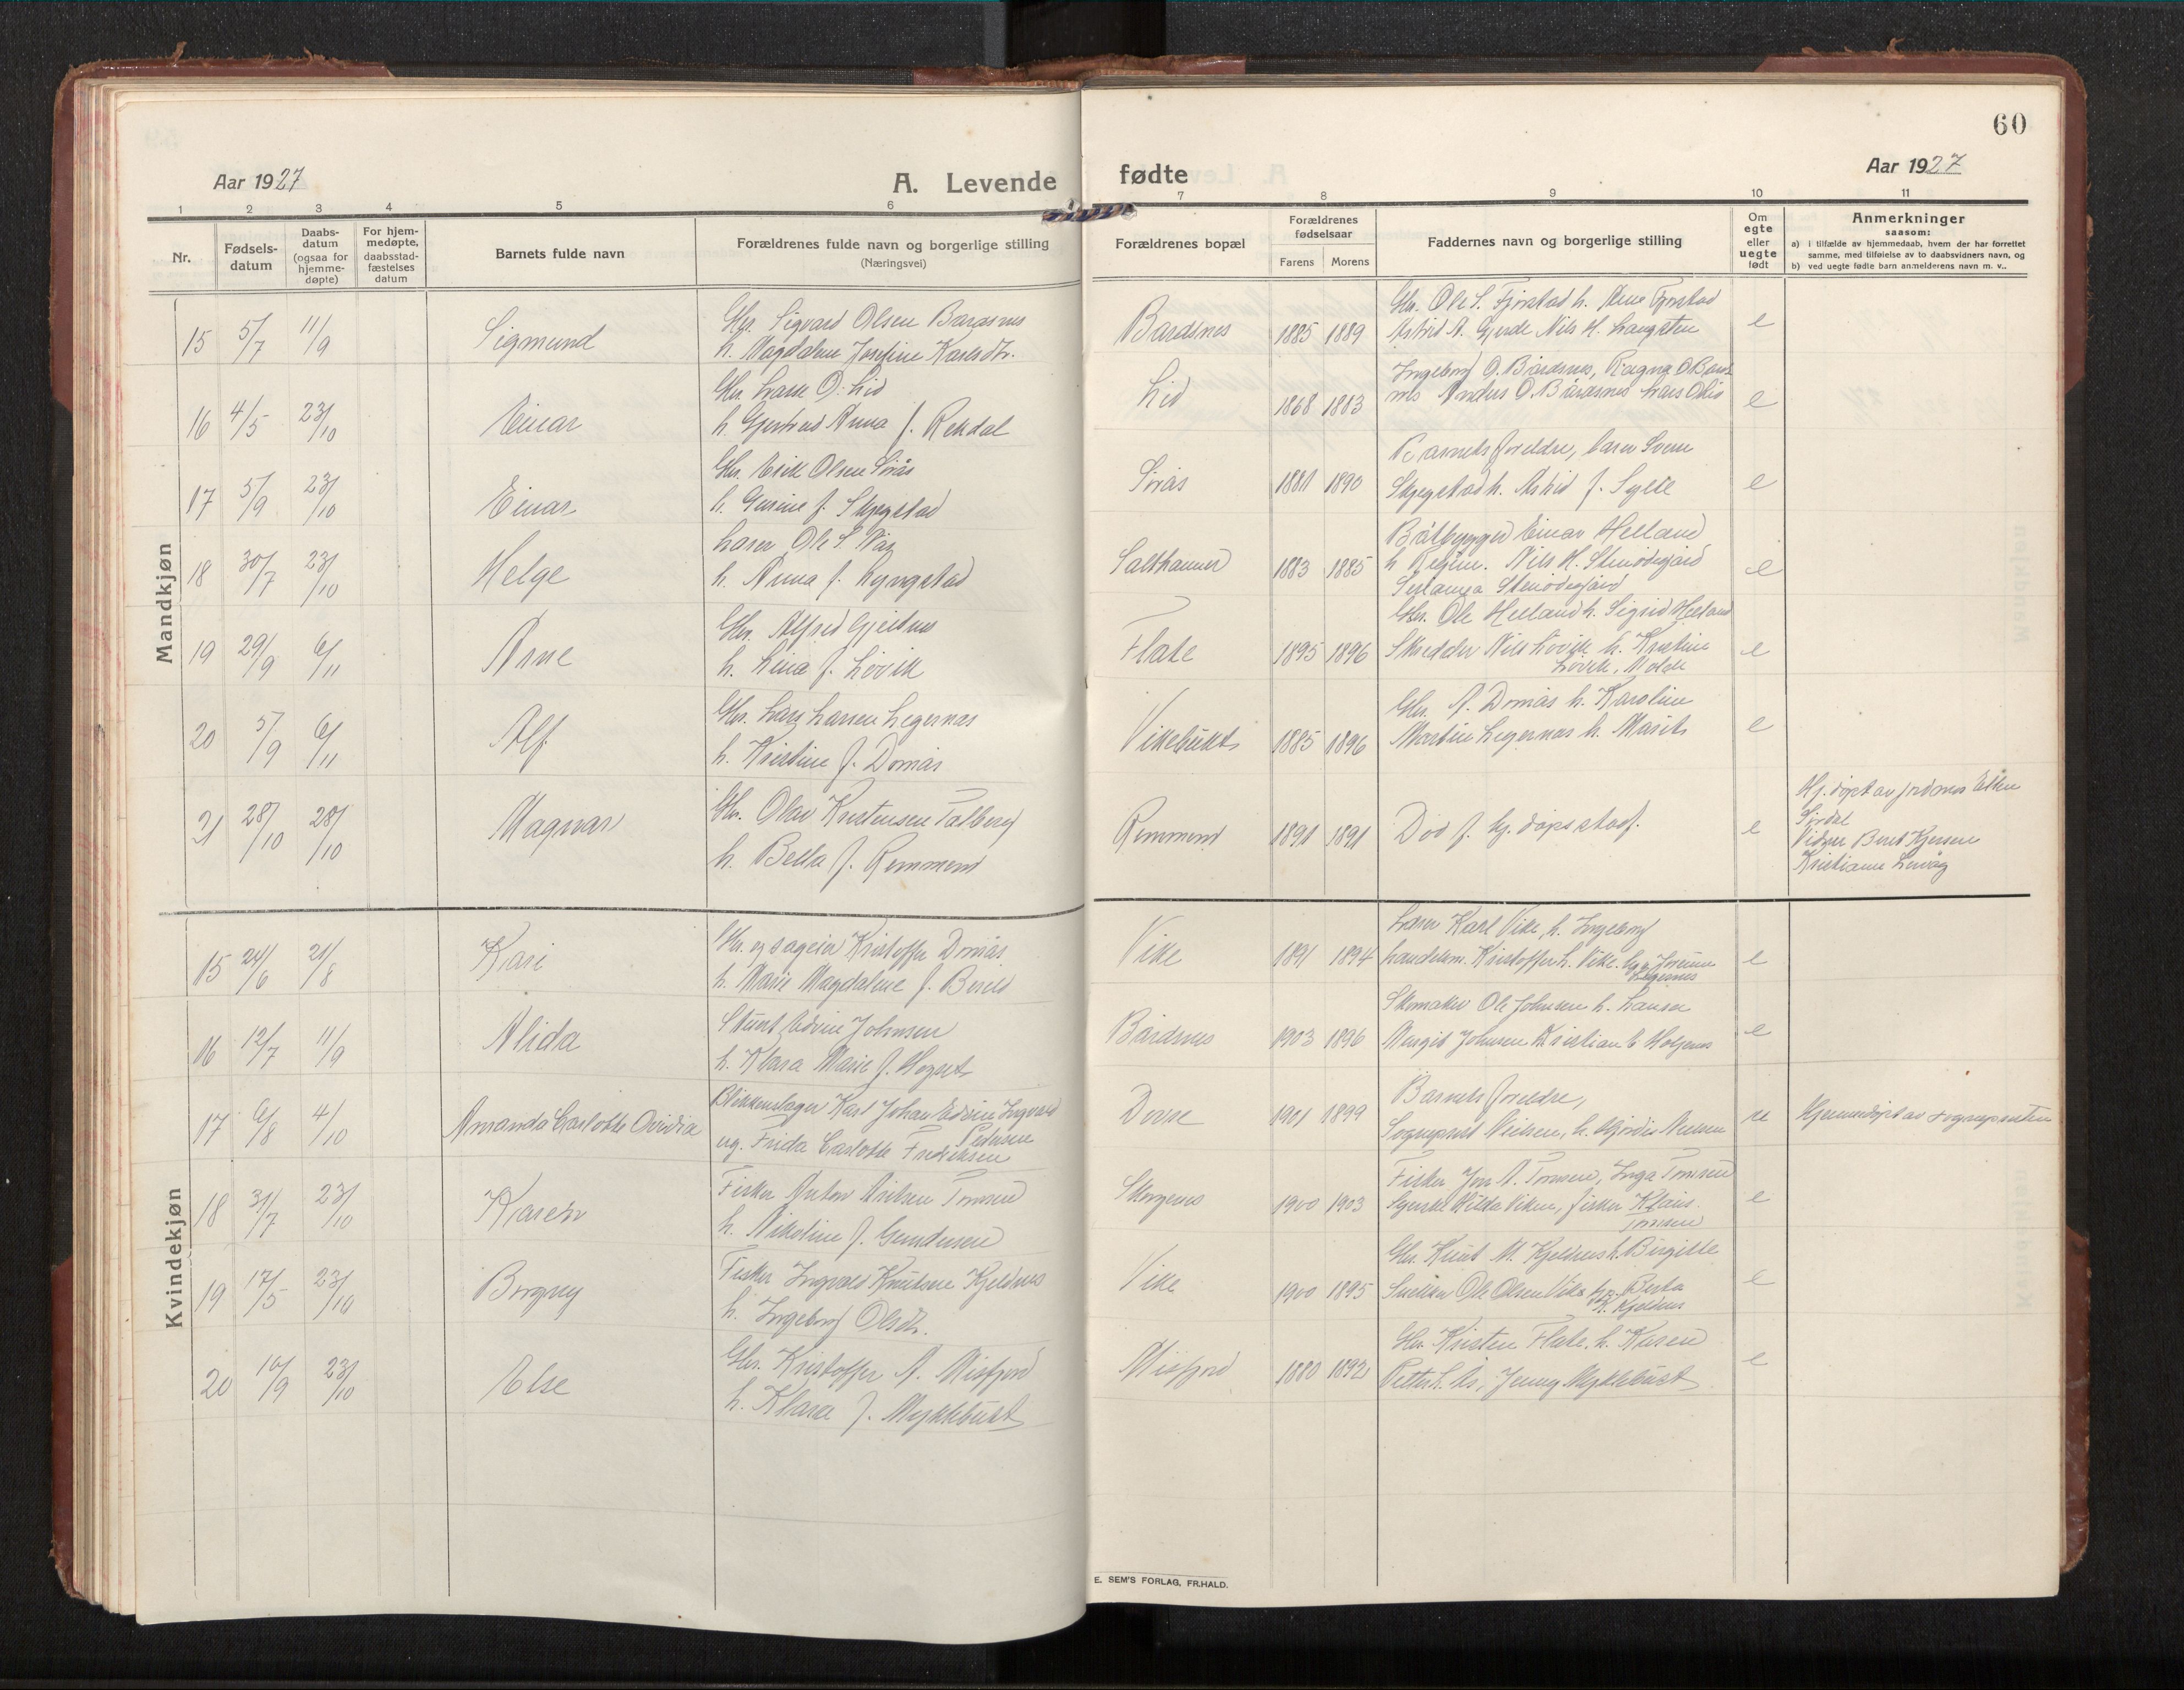 60
Aar 1927
A. Levende fødte
Aar 1927
1 2 3 4 5 6 7 8 9 10 11
Nr.
Fødsels-
datum
Daabs-
datum
(ogsaa for
hjemme-
døpte)
For hjem-
medøpte,
daabsstad-
fæstelses
datum
Barnets fulde navn
Forældrenes fulde navn og borgerlige stilling
(Næringsvei)
Forældrenes bopæl
Forældrenes
fødselsaar
Farens Morens
Faddernes navn og borgerlige stilling
Om
egte
eller
uegte
født
Anmerkninger
saasom:
a) i tilfælde av hjemmedaab, hvem der har forrettet
samme, med tilføielse av to daabsvidners navn, og
b) ved uegte fødte barn anmelderens navn m. v..
Mandkjøn
15 5/7 11/9 Sigmund
Gbr. Sigvard Olsen Bårdsnes
h. Magdalene Josefine Karlsdtr.
Bardsnes 1885 1889
Gbr. Ole S. Fjørstad h. Anne Fjørstad
Astrid A. Gjerde Nils H. Langsten
e
16 4/5 23/10 Einar
Gbr. Lasse O. Lid
h. Gjertrud Anna f. Rekdal
Lid 1868 1883
Ingeborg O. Bårdsnes, Ragna O Bårds
nes Anders O. Bårdsnes Lars O Lid
e
17 5/9 23/10 Einar
Gbr. Erik Olsen Sørås
h. Gurine f. Skjegstad
Sørås 1881 1890
Barnets foreldre, Svein
Skjegstad h. Astrid f. Sylte
e
18 30/7 23/10 Helge
Lærer Ole S. Nås
h. Anna f. Lyngstad
Salthammer 1883 1885
Båtbygger Einar Helland
h Regine. Nils H. Stenødegård
Stenødegård
e
19 29/9 6/11 Arne
Gbr. Alfred Gjeldnes
h. Lina f. Løvik
Flate 1895 1896
Gbr. Ole Helland h. Sigrid Helland
Skredder Nils Løvik h. Kristine
Løvik, Molde
e
20 5/9 6/11 Alf
Gbr. Lars Larsen Legernes
h. Kristine f. Dømås
Vikebukt 1885 1896
Gbr. A. Dømås h. Karoline
Martin Legernes h. Marit
e
21 28/10 28/10 Magnar
Gbr. Olav Kristensen Talberg
h. Bella f. Remmem
Remmem 1891 1891
Død f. hj. dåps stadf.
e
Hj. døpt av jordmor Ellen
Sørdal
Vidner Berit Kjersem
Kristianne Levåg
Kvindekjøn
15 24/6 21/8 Kari
Gbr. og sageier Kristoffer Dømås
h. Marie Magdalene f. Bereld
Vike 1891 1894
Lærer Karl Vike, h. Ingeborg
handelsm. Kristoffer L. Vike.
Legernes
e
16 12/7 11/9 Alida
Edvin Johnsen
h. Klara Marie f. Hognet
Bårdsnes 1903 1896
Skomaker Ole Johnsen h. Lausen
Margit Johnsen Kristian E Holjenes
e
17 6/8 4/10 Amanda Carlotte Ovidia
Blikkenslager Karl Johan Edvin Ingvald
Pedersen
ug. Frida Carlotte Fredriksen
Dovre 1901 1899
Barnets foreldre,
Sogneprest Nielsen, h. Hjørdis Nielsen
ue
Hjemmedøpt av sognepresten
18 31/7 23/10 Karen
Fisker Anton Nilsen Tomren
h. Nikoline f. Gundersen
Skorgenes 1900 1903
Fisker Jon A. Tomren, Inga Tomren
Hilda Viken, fisker Klaus
Tomren
e
19 17/5 23/10 Borgny
Fisker Ingvald Knutsen Kjeldnes
h. Ingeborg Olsdtr.
Vike 1900 1895
Gbr. Knut M. Kjeldnes h. Birgitte
Snekker Ole Olsen Vike Berta
K. Kjeldnes
e
20 10/9 23/10 Else
Gbr. Kristoffer A. Misfjord
h. Klara f. Myklebust
Misfjord 1880 1892
Gbr. Kristen Flate. h. Karen
Petter L. Ås, Jenny Myklebust
e
E. SEM'S FORLAG, FR.HALD.